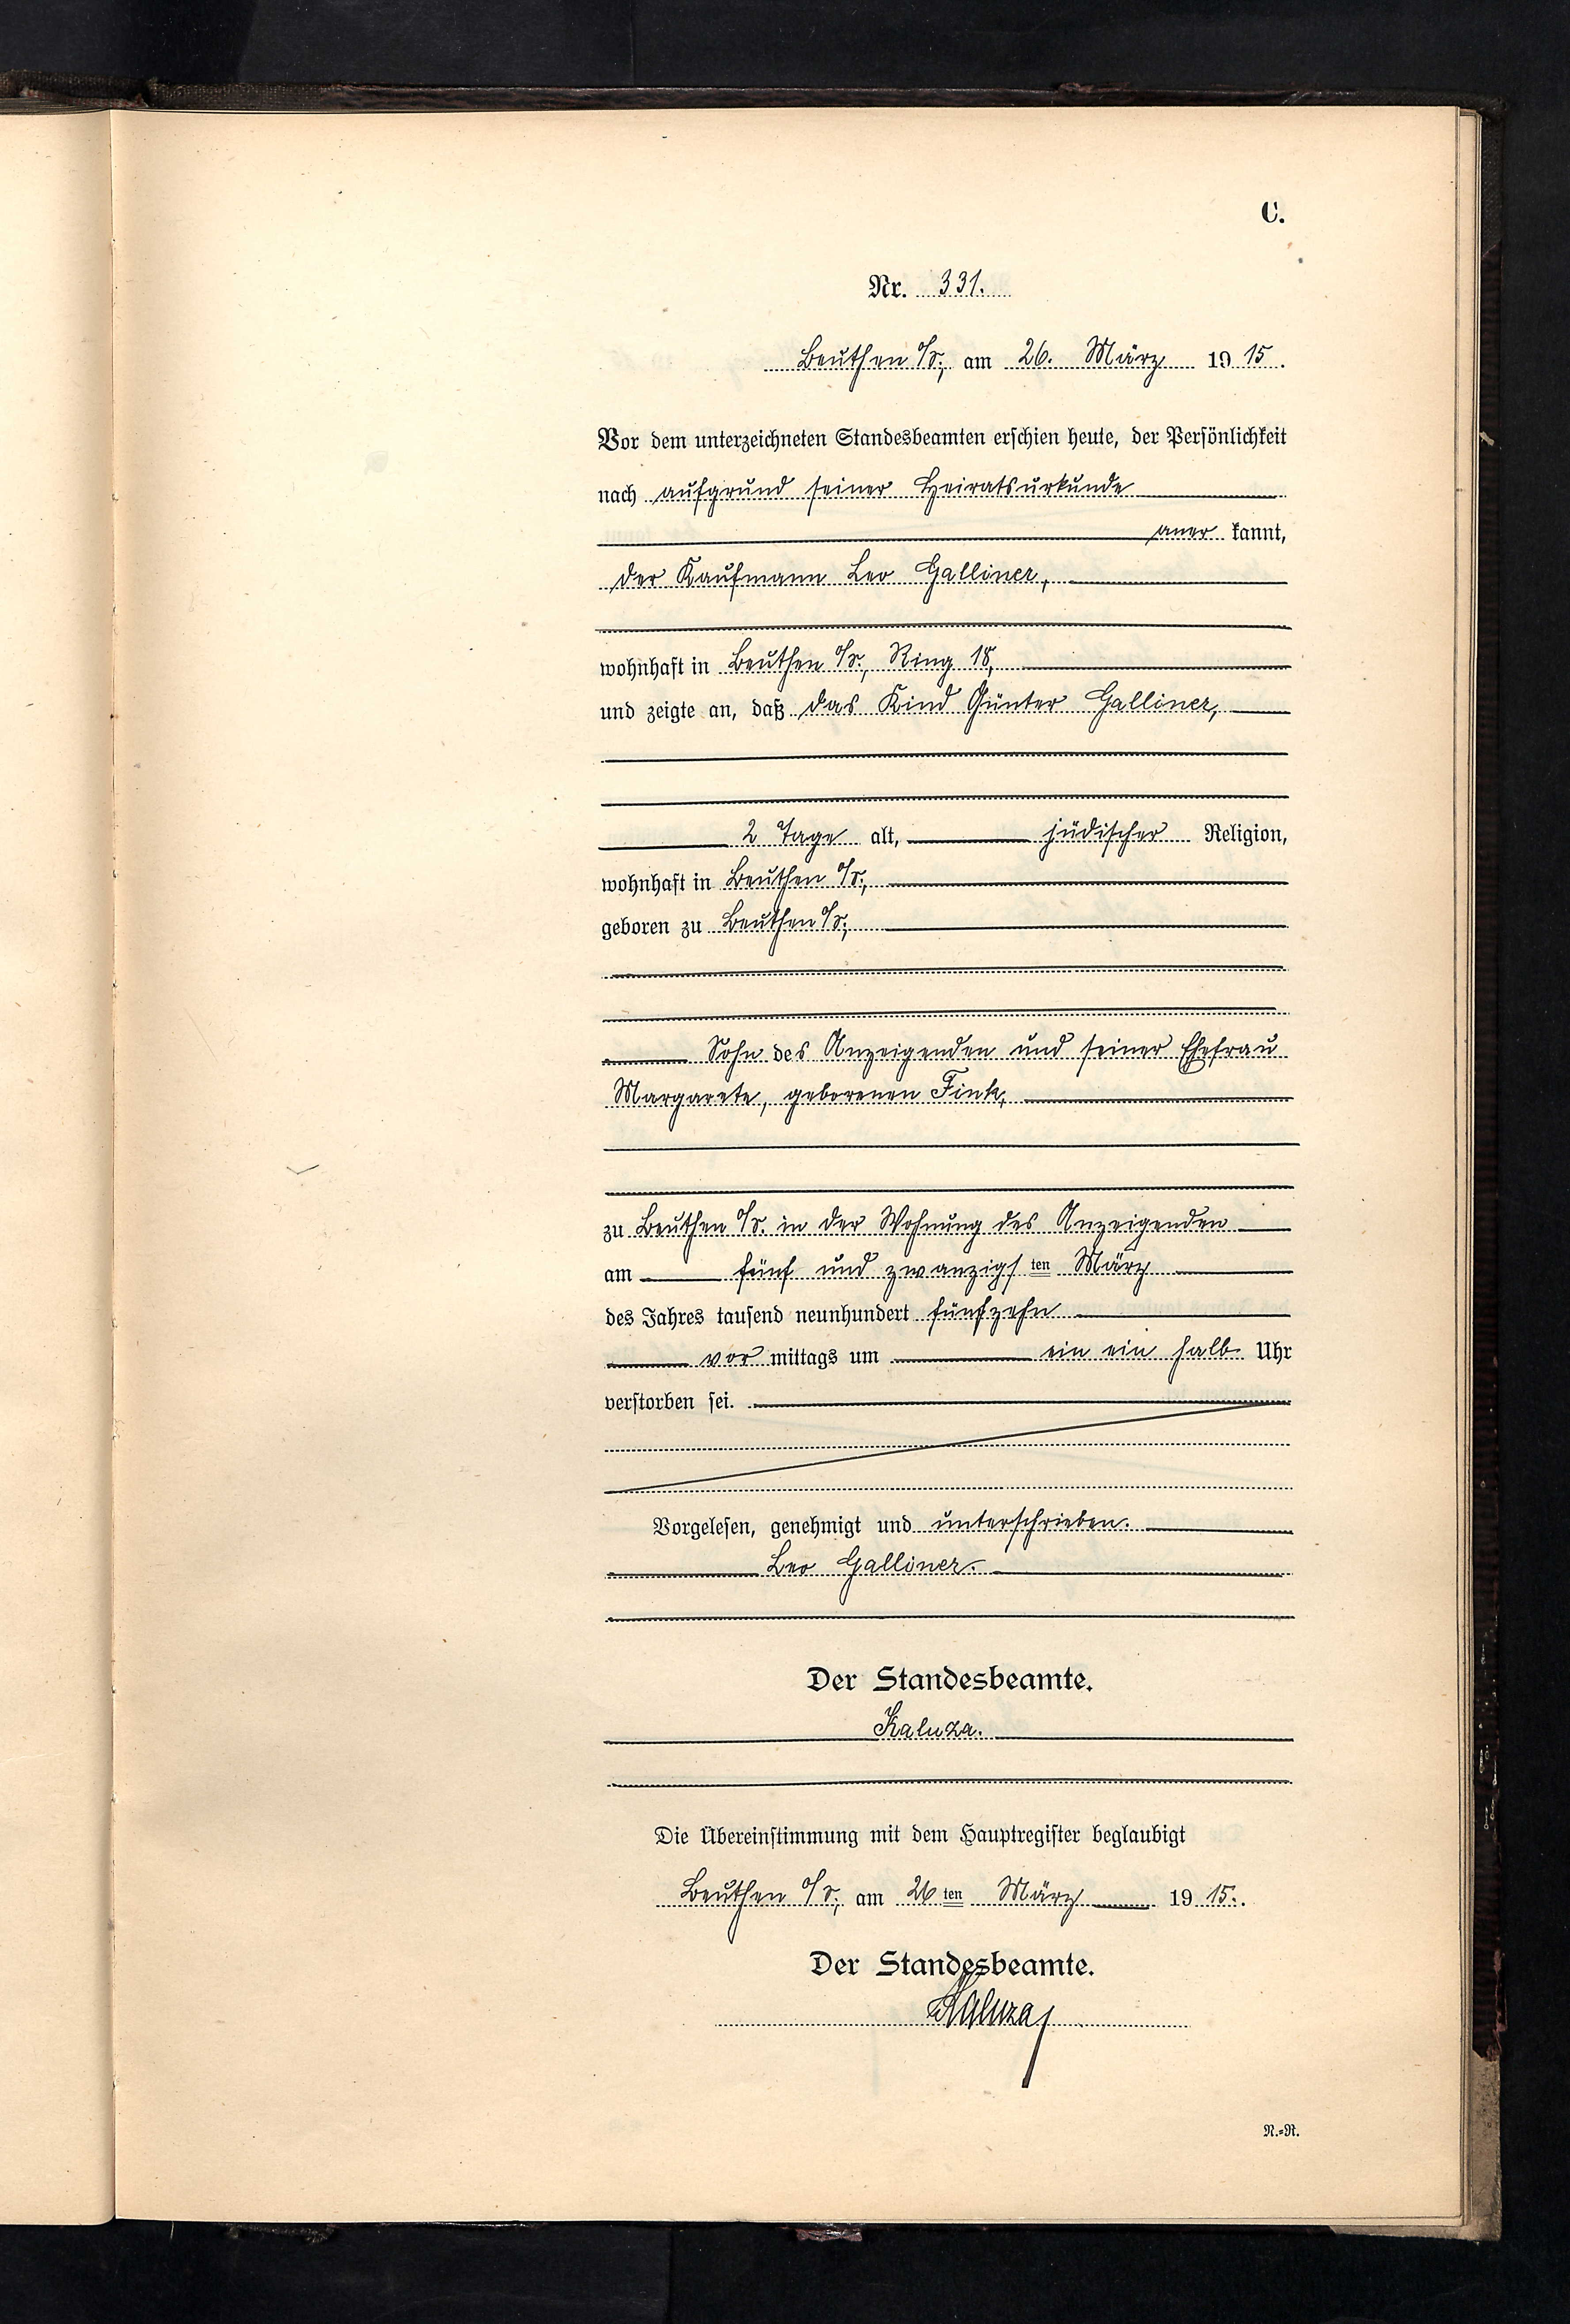 C.
Nr. 331.
Beuthen O/S., am 26. März 1915.
Vor dem unterzeichneten Standesbeamten erschien heute, der Persönlichkeit
nach aufgrund seiner Heiratsurkunde
aner kannt,
der Kaufmann Leo Galliner,
wohnhaft in Beuthen O/S., Ring 18,
und zeigte an, daß das Kind Günter Galliner,
2 Tage alt, jüdischer Religion,
wohnhaft in Beuthen O/S.,
geboren zu Beuthen O/S.,
Sohn des Anzeigenden und seiner Ehefrau
Margarete, geborenen Fink,
zu Beuthen O/S. in der Wohnung des Anzeigenden
am fünf und zwanzigsten März
des Jahres tausend neunhundert fünfzehn
vor mittags um ein ein halb Uhr
verstorben sei.
Vorgelesen, genehmigt und unterschrieben.
Leo Galliner.
Der Standesbeamte.
Kaluza.
Die Übereinstimmung mit dem Hauptregister beglaubigt
Beuthen O/S., am 26ten März 1915.
Der Standesbeamte.
Kaluza
N.=R.